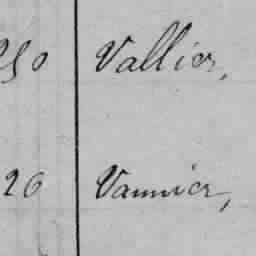 250 Vallier,
26 Vannier,